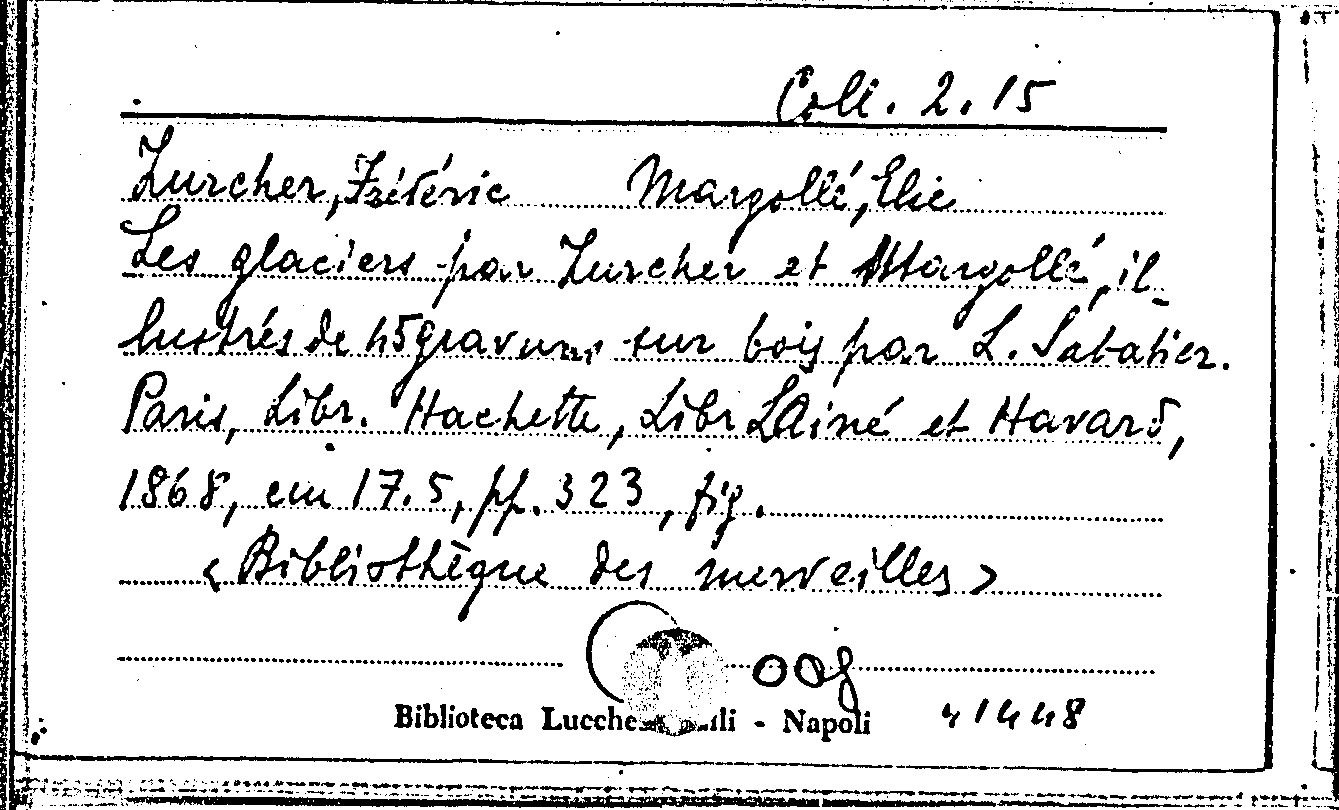 Coll. 2.15
Zurcher, Frédéric Margollé, Elie
Les glaciers par Zurcher et Margollé, il-
lustrés de 45 gravures sur bois par L. Sabatier.
Paris, Libr. Hachette, Libr. L. Ainé et Havard,
1868, cm 17.5, pp. 323, fig.
«Bibliothèque des merveilles»
Biblioteca - Napoli 41448